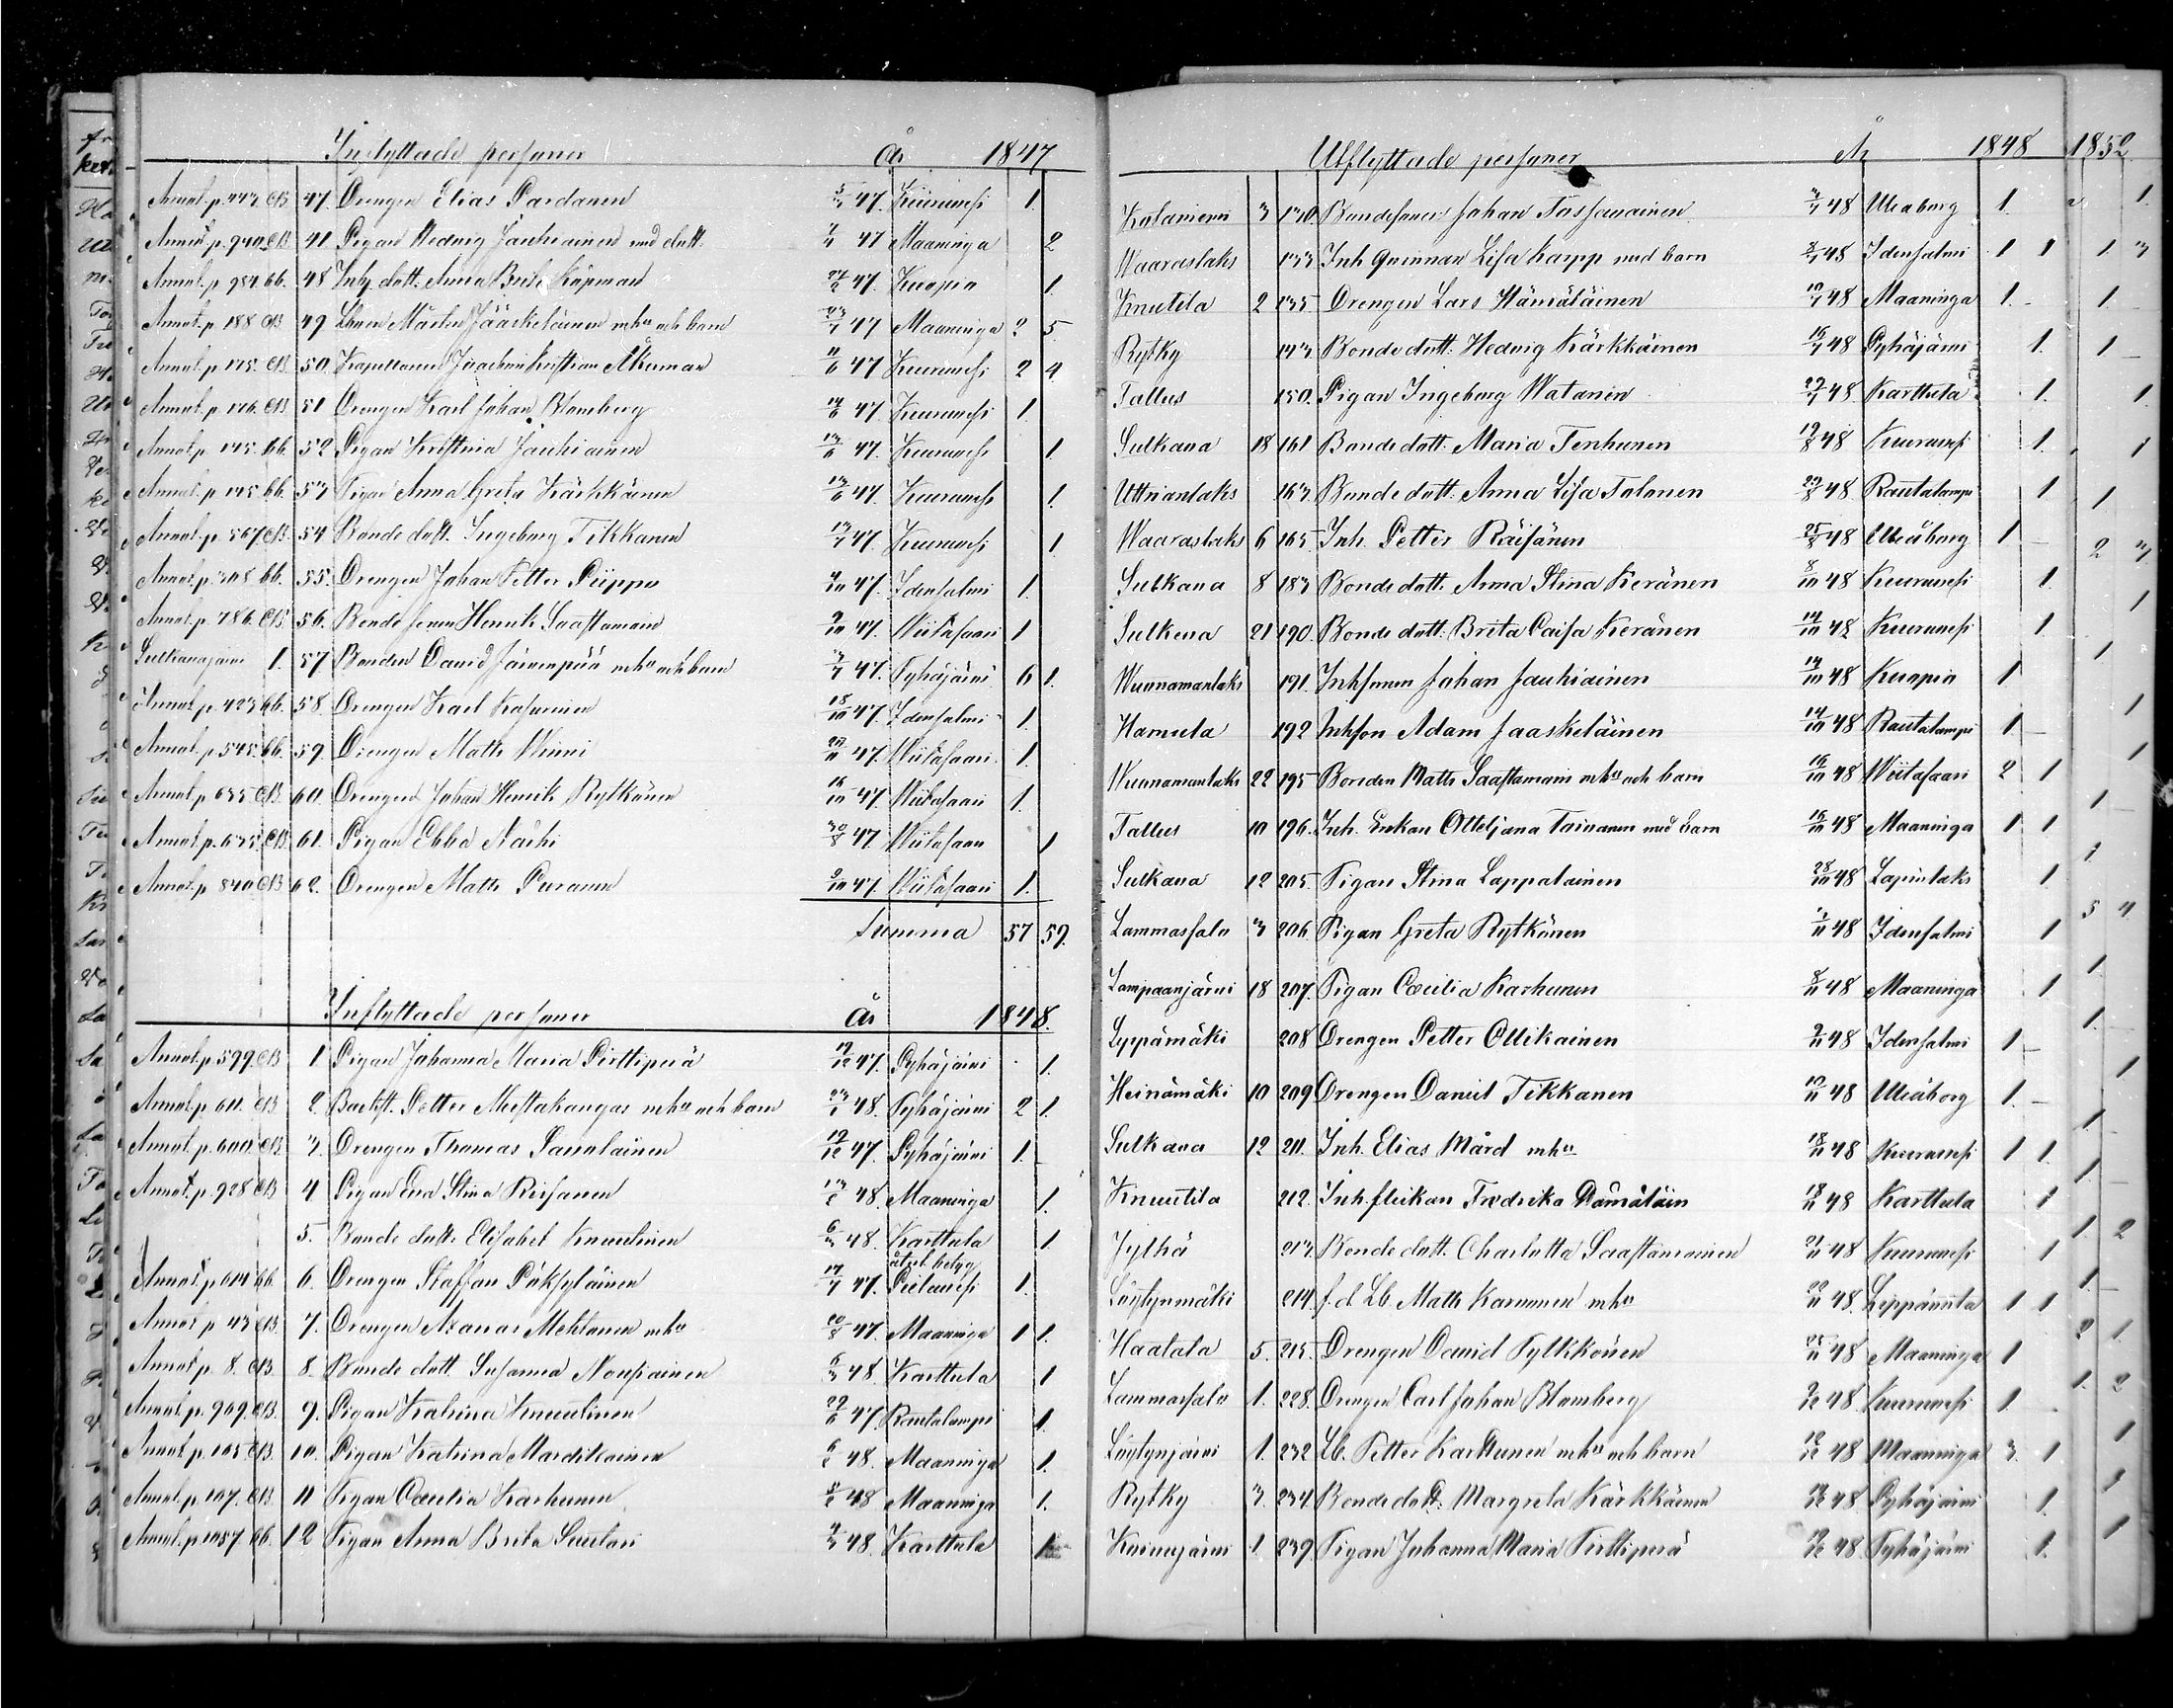 Inflyttade personer År 1847
Annot. p. 443 CB 47. Drengen Elias Pardanen 47. Kiuruvesi 1.
Annot. p. 940 CB 41 Pigan Hedvig Jauhiainen med dott. 47 Maaninga 2
Annot. p. 984 bb. 48 Inh. dott. Anna Brita Köpman 47. Kuopio 1.
Annot. p. 188 CB 49 Mårten Jääskeläinen mhu och barn 47 Maaninga 2 5.
Annot. p. 175. CB. 50. Kapellanen Joachim Kristian Åkerman 47 Kiuruvesi 2 4.
Annot. p. 176. CB 51 Drengen Karl Johan Blomberg 47. Kiuruvesi 1.
Annot. p. 145. bb. 52 Pigan Kristina Jauhiainen 47. Kiuruvesi 1.
Annot. p. 145 bb. 53 Pigan Anna Greta Kärkkäinen 47. Kiuruvesi 1.
Annot. p. 567 CB. 54 Bonde dott. Ingeborg Tikkanen 47. Kiuruvesi 1
Annot. p. 308 bb. 55. Drengen Johan Petter Piippo 47. Idensalmi 1.
Annot. p. 786. CB. 56. Bonde sonen Henrik Saastamoin 47. Wiitasaari 1
Sulkavajärvi 1. 57 Bonden David Järvenpää mhu och barn 47. Pyhäjärvi 6 1.
Annot. p. 423 bb. 58. Drengen Karl Kasurinen 18/10 47. Idensalmi 1.
Annot. p. 545. bb. 59. Drengen Matts Minni 47. Wiitasaari. 1.
Annot. p. 635 CB. 60. Drengen Johan Henrik Rytkönen 16/10 47 Wiitasaari 1.
Annot. p. 635. CB. 61. Pigan Ebba Närhi 30/8 47 Wiitasaari 1
Annot. p. 840 CB 62. Drengen Matts Puranen 47 Wiitasaari 1.
Summa 57 59.
Inflyttade personer År 1848.
Annot. p. 599. CB 1 Pigan Johanna Maria Pirttiperä 47. Pyhäjärvi 1.
Annot. p. 611. CB 2. Backst. Petter Mustakangas mhu och barn 48. Pyhäjärvi 2 1.
Annot. p. 600. CB 3. Drengen Thomas Savolainen 47. Pyhäjärvi 1.
Annot. p. 928 CB 4 Pigan Eva Stina Ruisanen 48. Maaninga 1.
5. Bonde dott. Elisabet Knuutinen 48. Karttula 1.
Annot. p. 614 bb. 6. Drengen Staffan Pöksyläinen 47. Pielavesi 1.
Annot. p. 43 CB. 7. Drengen Asarias Mehtonen mhu 47. Maaninga 1 1.
Annot. p. 8. CB. 8. Bonde dott. Susanna Nousiainen 48. Karttula 1
Annot. p. 969. CB. 9. Pigan Katrina Knuutinen 47. Rautalampi 1.
Annot. p. 105 CB. 10. Pigan Katrina Mardikainen 48. Maaninga 1.
Annot. p. 107. CB. 11 Pigan Cæcilia Karhunen 48 Maaninga 1.
Annot. p. 1057 bb. 12 Pigan Anna Brita Sauhari 48. Karttula 1
Utflyttade personer År 1848
Kolaniemi 3 130. Bondesonen Johan Tossavainen 48 Uleaborg 1.
Waaraslaks 133 Inh. quinnan Lisa Karpp med barn 48 Idensalmi 1 1
Knutila 2 135 Drengen Lars Hämäläinen 48 Maaninga 1.
Rytky 143. Bonde dott. Hedvig Kärkkäinen 48 Pyhäjärvi 1.
Tallus 150. Pigan Ingeborg Watanen 48 Karttula 1.
Sulkava 18 161 Bonde dott. Maria Tenhunen 48 Kiuruvesi 1.
Uttrianlaks 163. Bonde dott. Anna Lisa Tolonen 48 Rautalampi 1
Waaraslaks 6 165 Inh. Petter Räisänen 48 Uleåborg 1
Sulkava 8 183 Bonde dott. Anna Stina Keränen 8/10 48 Kiuruvesi 1.
Sulkava 21 190. Bonde dott. Brita Caisa Keränen 14/10 48 Kiuruvesi 1.
Wuonamanlaks 191. Inhsonen Johan Jauhiainen 14/10 48 Kuopio 1
Hamula 192 Inhson Adam Jaaskeläinen 14/10 48 Rautalampi 1
Wuonamanlaks 22 195 Bonden Matts Saastamoin mhu och barn 16/10 48 Wiitasaari 2 1
Tallus 10 196. Inh. Enkan Otteljana Toivanen med barn 16/10 48 Maaninga 1 1
Sulkava 12 205. Pigan Stina Lappalainen 28/10 48 Lapinlaks 1
Lammassalo 3 206. Pigan Greta Rytkönen 48 Idensalmi 1
Lampaanjärvi 18 207. Pigan Cæcilia Karhunen 48 Maaninga 1
Lyppämäki 208 Drengen Petter Ollikainen 48 Idensalmi 1
Heinämäki 10 209 Drengen Daniel Tikkanen 48 Uleåborg 1.
Sulkava 12 211. Inh. Elias Mård mhu 18/11 48 Kiuruvesi 1 1.
Knuutila 212. Inh. flickan Fredrika Hämäläin 18/11 48 Karttula 1
Jylhä 213. Bonde dott. Charlotta Saastamoinen 48 Kiuruvesi 1
Löytynmäki 214. f.d. Lb. Matts Karvonen mhu 48. 1 1
Haatala 5. 215. Drengen David Pylkkönen 48 Maaninga 1
Lammassalo 1. 228. Drengen Carl Johan Blomberg 48 Kiuruvesi 1.
Löytynjärvi 1. 232 Lb. Petter Karttunen mhu och barn 48 Maaninga 3. 1
Rytky 3. 234 Bonde dott. Margreta Kärkkäinen 48 Pyhäjärvi 1.
Koivujärvi 1 239 Pigan Johanna Maria Pirttiperä 48. Pyhäjärvi 1.
1852